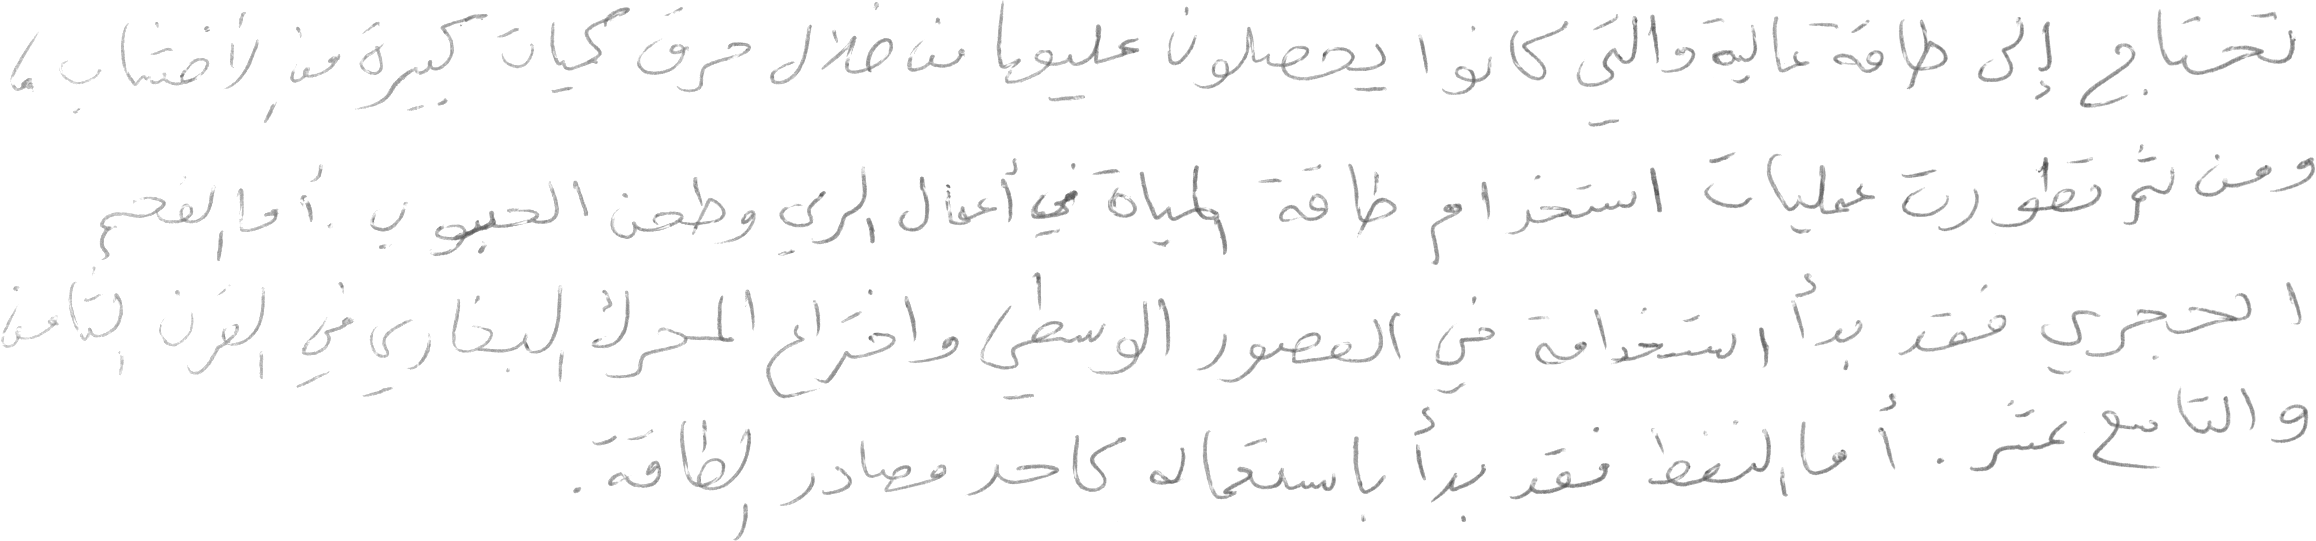 تحتاج إلى طاقة عالية والتي كانوا يحصلون عليها من خلال حرق كميات كبيرة من الأخشاب،
ومن ثم تطورت عمليات استخدام طاقة المياة في أعمال الري وطحن الحبوب. أما الفحم
الحجري فقد بدأ استخدامة في العصور الوسطي واختراع المحرك البخاري في القرن الثامن
والتاسع عشر. أما النفط فقد بدأ باستعماله كاحد مصادر الطاقة.